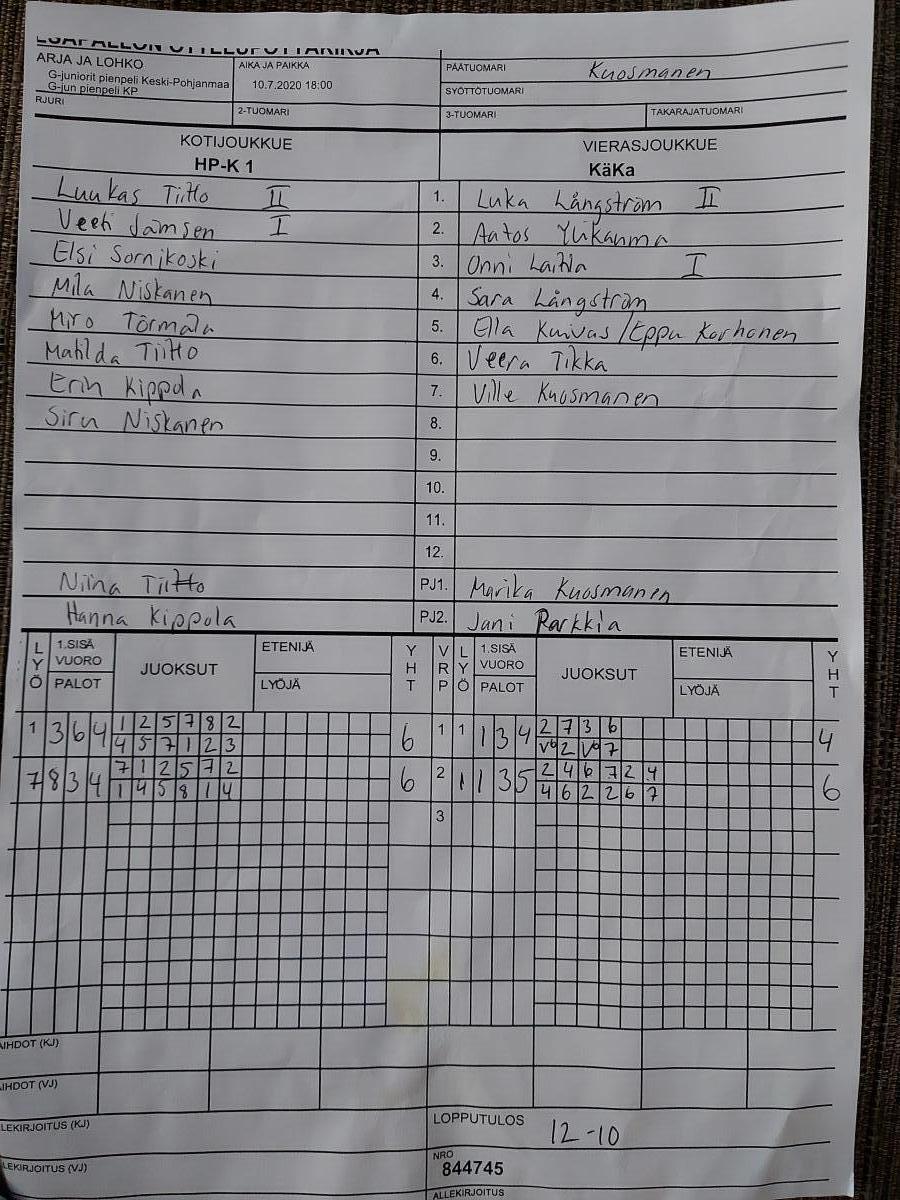 ARJA JA LOHKO
G-juniorit pienpeli Keski-Pohjanmaa
G-jun pienpeli KP
AIKA JA PAIKKA
10.7.2020 18:00
PÄÄTUOMARI Kuosmanen
SYÖTTÖTUOMARI
RJURI
2-TUOMARI
3-TUOMARI
TAKARAJATUOMARI
KOTIJOUKKUE
HP-K 1
VIERASJOUKKUE
KäKa
Luukas Tiitto II 1. Luka Långström II
Veeti Jämsen I 2. Aatos Ylikauma
Elsi Sornikoski 3. Onni Laitila I
Mila Niskanen 4. Sara Långström
Miro Törmälä 5. Ella Kuivas/Eppu Korhonen
Matilda Tiitto 6. Veera Tikka
Erin Kippola 7. Ville Kuosmanen
Siru Niskanen 8.
9.
10.
11.
12.
Niina Tiitto PJ1. Marika Kuosmanen
Hanna Kippola PJ2. Jani Parkkia
LYÖ 1.SISÄ VUORO PALOT JUOKSUT ETENIJÄ LYÖJÄ YHT VRP LYÖ 1.SISÄ VUORO PALOT JUOKSUT ETENIJÄ LYÖJÄ YHT
1 3 6 4 1 2 5 7 8 2 6 1 1 1 3 4 2 7 3 6 4
4 5 7 1 2 3 V6 2 V6 7
7 8 3 4 7 1 2 5 7 2 6 2 1 1 3 5 2 4 6 7 2 4 6
1 4 5 8 1 4 4 6 2 2 6 7
3
AIHDOT (KJ)
AIHDOT (VJ)
LEKIRJOITUS (KJ)
LOPPUTULOS 12-10
LEKIRJOITUS (VJ)
NRO
844745
ALLEKIRJOITUS